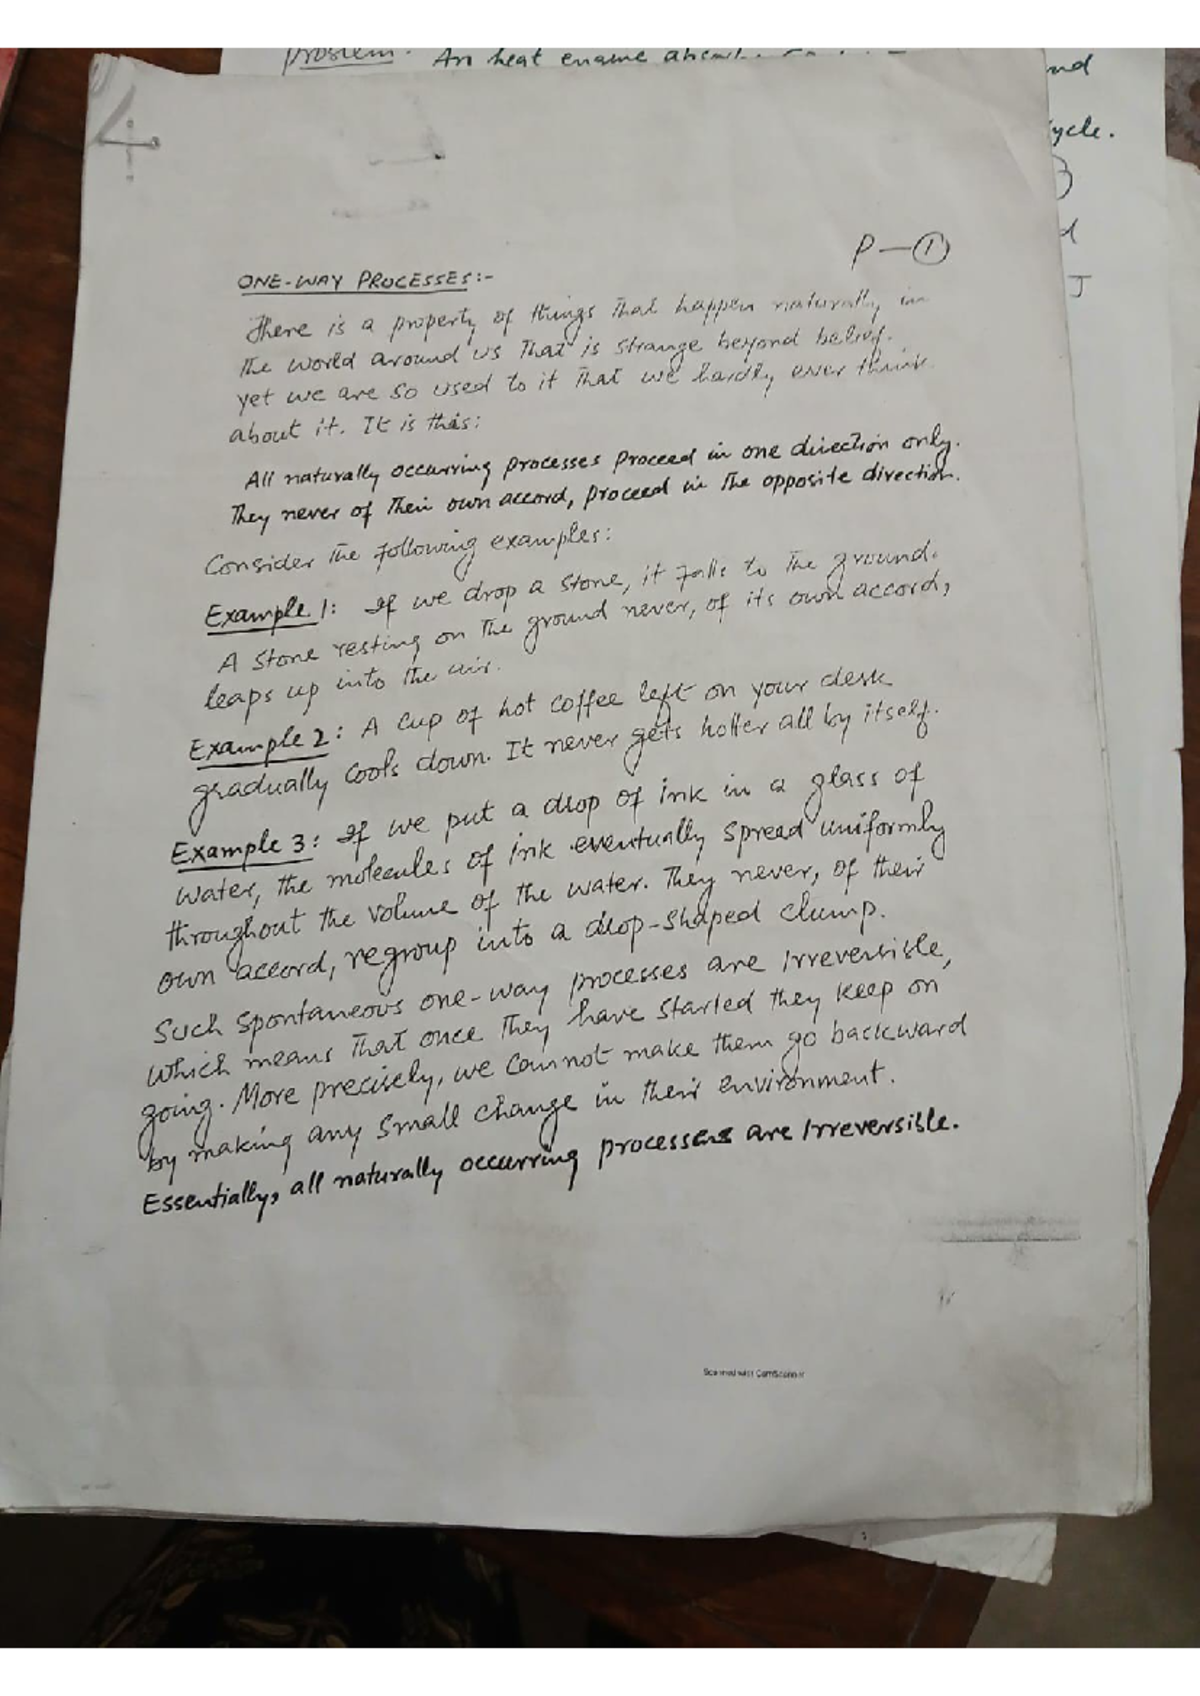 Problem. An heat
nd
ycle.
d
J
P-①
ONE-WAY PROCESSES:-
There is a property of things That happen naturally in
The world around us That is strange beyond belief.
yet we are so used to it That we hardly ever think
about it. It is this:
All naturally occurring processes Proceed in one direction only.
They never of Their own accord, proceed in The opposite direction.
Consider The following examples:
Example 1: If we drop a stone, it falls to The ground.
A stone resting on The ground never, of its own accord,
leaps up into The air.
Example 2: A cup of hot coffee left on your desk
gradually cools down. It never gets hotter all by itself.
Example 3: If we put a drop of ink in a glass of
water, the molecules of ink eventually spread uniformly
throughout the volume of the water. They never, of their
own accord, regroup into a drop-shaped clump.
Such spontaneous one-way processes are Irreversible,
which means That once They have started they keep on
going. More precisely, we cannot make them go backward
by making any small change in their environment.
Essentially, all naturally occurring processess are Irreversible.
Scanned with CamScanner